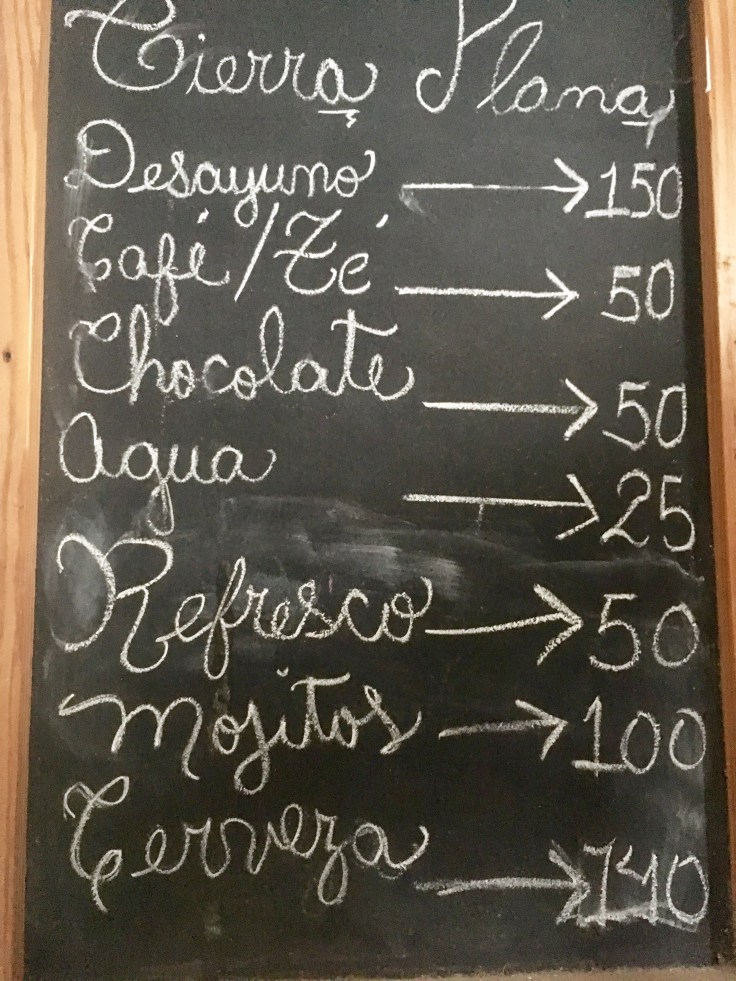 Tierra Plana
Desayuno → 150
Café/Té → 50
Chocolate → 50
Agua → 25
Refresco → 50
Mojitos → 100
Cerveza → 140